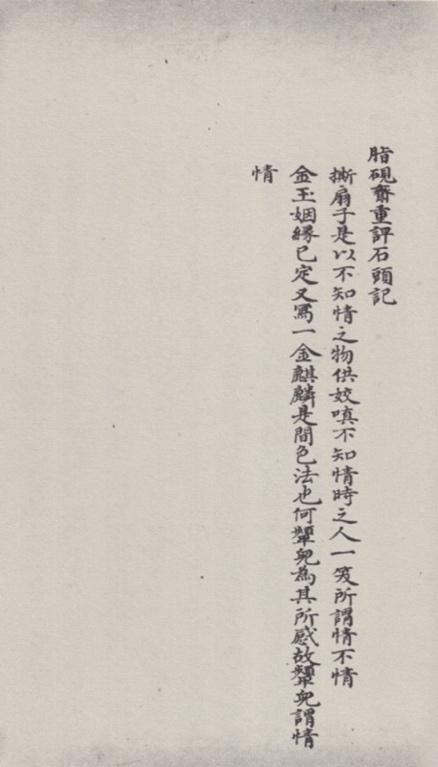 脂硯齋重評石頭記
撕扇子是以不知情之物供姣嗔不知情時之人一笑所謂情不情
金玉姻緣已定又寫一金麒麟是間色法也何顰兒為其所惑故顰兒謂情
情